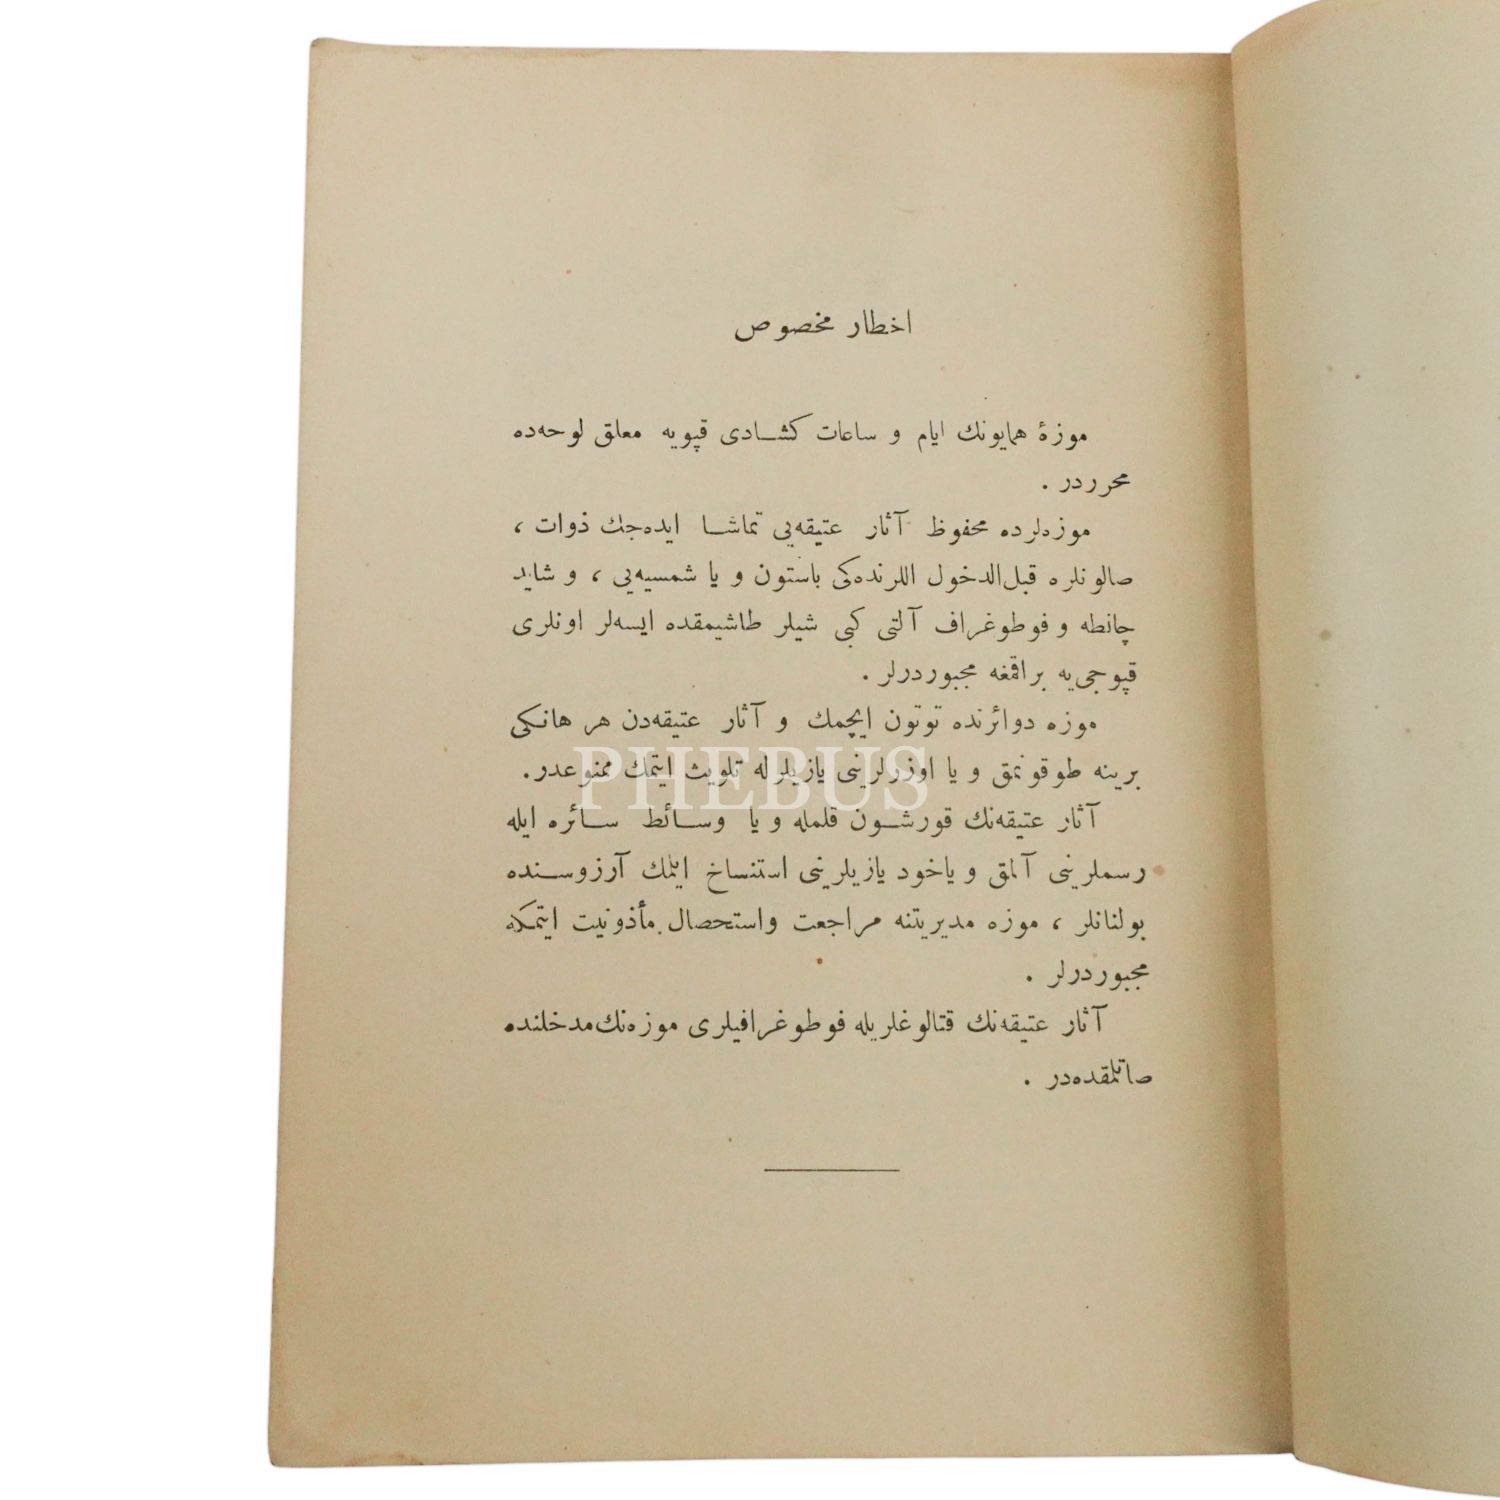 اخطار مخصوص
موزۀ همایونك ایام و ساعات كشادی قپویه معلق لوحه‌ده
محرردر .
موزه‌لرده محفوظ آثار عتیقه‌یی تماشا ایده‌جك ذوات ،
صالونلره قبل‌الدخول اللرنده‌كی باستون و یا شمسیه‌یی ، و شاید
چانطه و فوطوغراف آلتی كبی شیلر طاشیمقده ایسه‌لر اونلری
قپوجی‌یه براقمغه مجبوردرلر .
موزه دوائرنده توتون ایچمك و آثار عتیقه‌دن هر هانكی
برینه طوقونمق و یا اوزرلرینی یازیلرله تلویث ایتمك ممنوعدر.
PHEBUS
آثار عتیقه‌نك قورشون قلمله و یا وسائط سائره ایله
رسملرینی آلمق و یاخود یازیلرینی استنساخ ایتمك آرزوسنده
بولنانلر ، موزه مدیریتنه مراجعت واستحصال مأذونیت ایتمكه
مجبوردرلر .
آثار عتیقه‌نك قتالوغلریله فوطوغرافیلری موزه‌نك مدخلنده
صاتلمقده‌در .